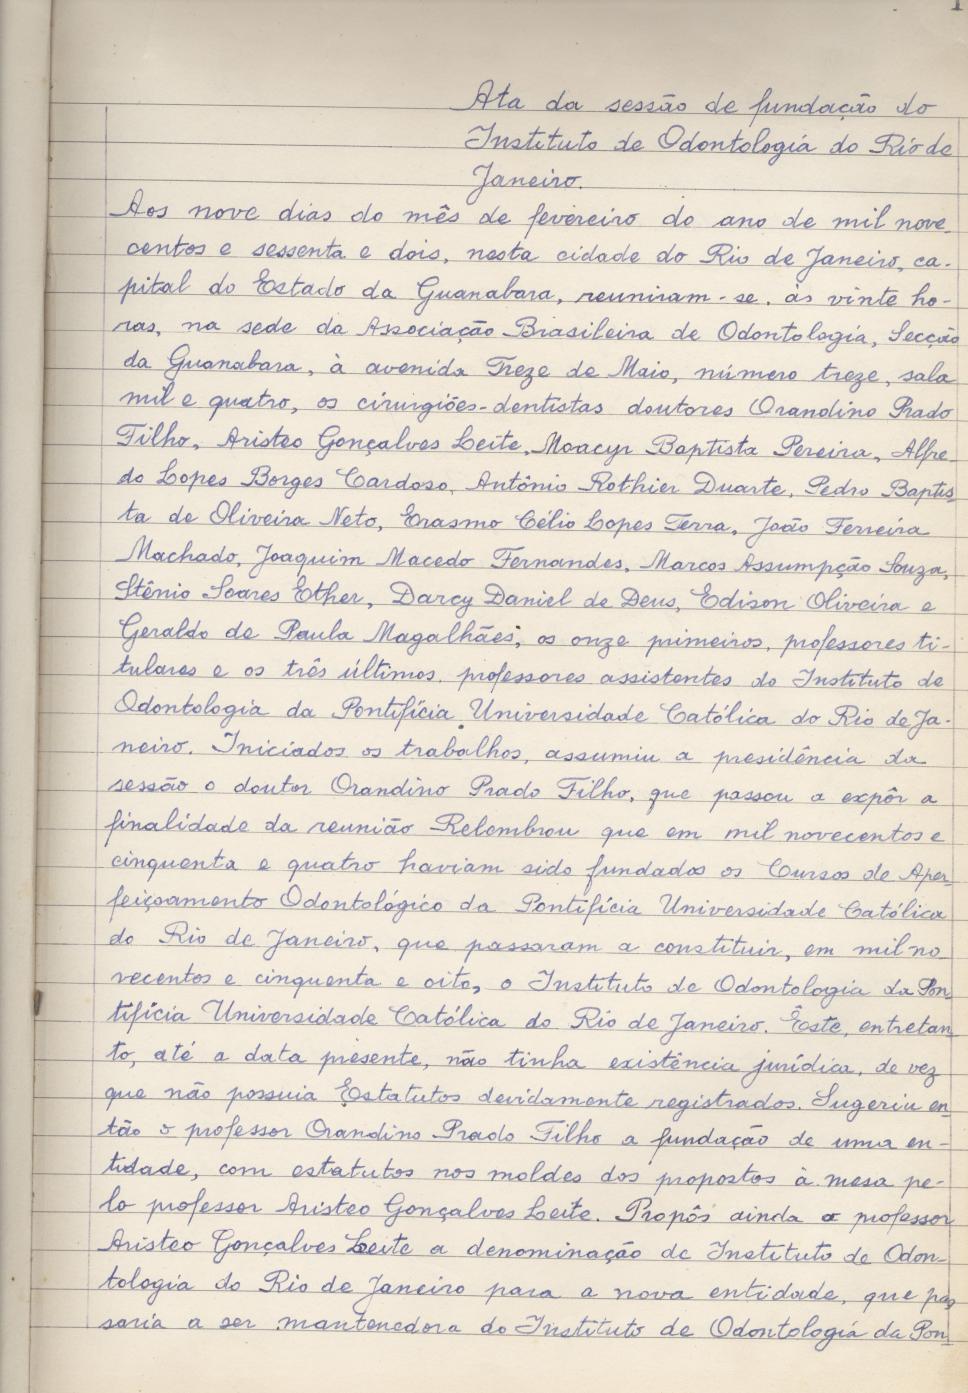 Ata da sessão de fundação do
Instituto de Odontologia do Rio de
Janeiro.
Aos nove dias do mês de fevereiro do ano de mil nove-
centos e sessenta e dois, nesta cidade do Rio de Janeiro, ca-
pital do Estado da Guanabara, reuniram-se, às vinte ho-
ras, na sede da Associação Brasileira de Odontologia, Secção
da Guanabara, à avenida Treze de Maio, número treze, sala
mil e quatro, os cirurgiões-dentistas doutores Orandino Prado
Filho, Aristeo Gonçalves Leite, Moacyr Baptista Pereira, Alfre-
do Lopes Borges Cardoso, Antônio Rothier Duarte, Pedro Baptis-
ta de Oliveira Neto, Erasmo Célio Lopes Terra, João Ferreira
Machado, Joaquim Macedo Fernandes, Marcos Assumpção Souza,
Stênio Soares Ether, Darcy Daniel de Deus, Edison Oliveira e
Geraldo de Paula Magalhães; os onze primeiros, professores ti-
tulares e os três últimos, professores assistentes do Instituto de
Odontologia da Pontifícia Universidade Católica do Rio de Ja-
neiro. Iniciados os trabalhos, assumiu a presidência da
sessão o doutor Orandino Prado Filho, que passou a expôr a
finalidade da reunião Relembrou que em mil novecentos e
cinquenta e quatro haviam sido fundados os Cursos de Aper-
feiçoamento Odontológico da Pontifícia Universidade Católica
do Rio de Janeiro, que passaram a constituir, em mil no-
vecentos e cinquenta e oito, o Instituto de Odontologia da Pon-
tifícia Universidade Católica do Rio de Janeiro. Êste, entretan-
to, até a data presente, não tinha existência jurídica, de vez
que não possuia Estatutos devidamente registrados. Sugeriu en-
tão o professor Orandino Prado Filho a fundação de uma en-
tidade, com estatutos nos moldes dos propostos à mesa pe-
lo professor Aristeo Gonçalves Leite. Propôs ainda o professor
Aristeo Gonçalves Leite a denominação de Instituto de Odon-
tologia do Rio de Janeiro para a nova entidade, que pas
saria a ser mantenedora do Instituto de Odontologia da Pon-